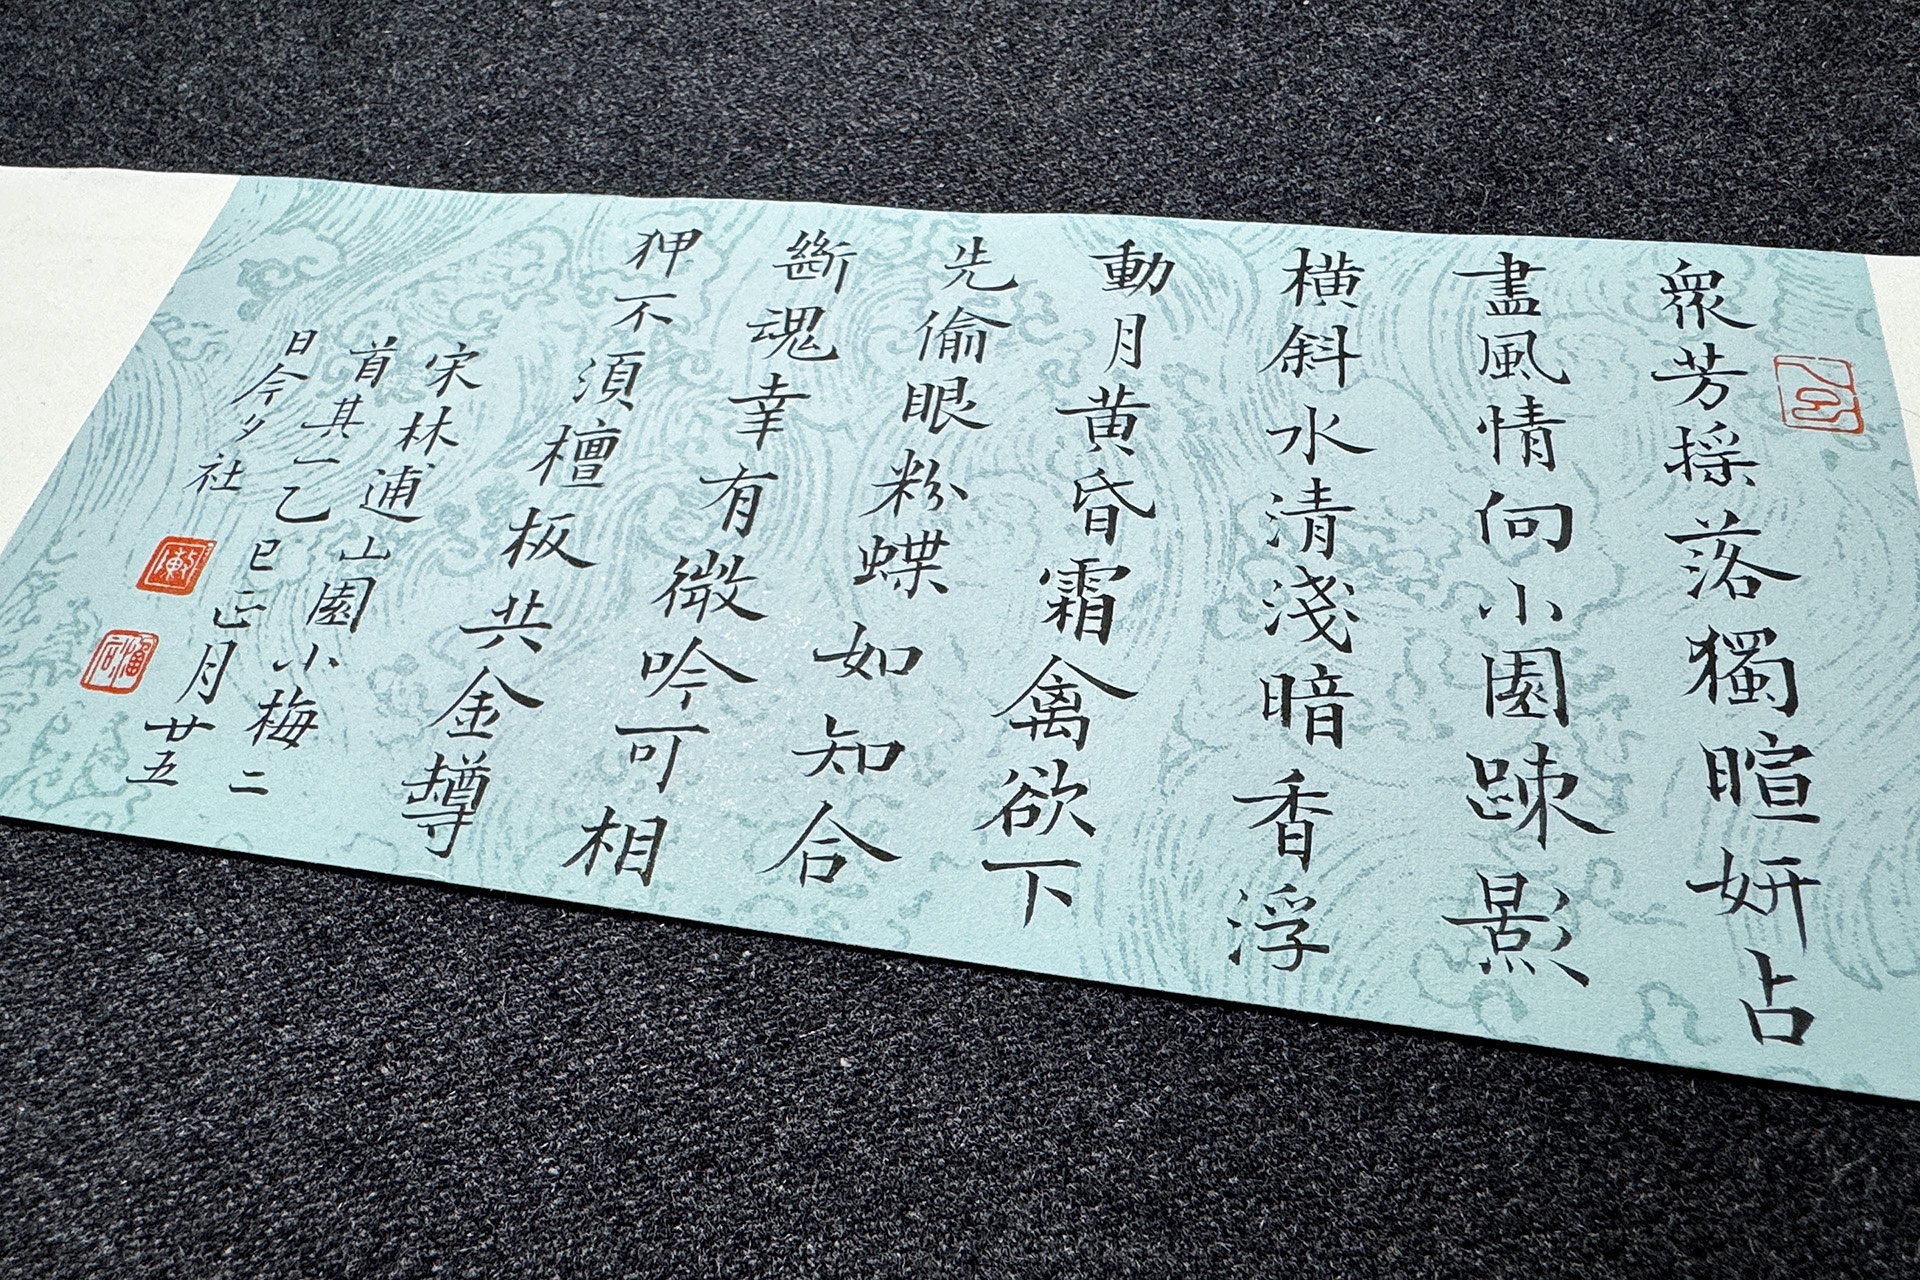 衆芳搖落獨暄妍占
盡風情向小園踈影
橫斜水清淺暗香浮
動月黃昏霜禽欲下
先偷眼粉蝶如知合
斷魂幸有微吟可相
狎不須檀板共金樽
宋林逋山園小梅二
首其一乙巳正月廿五
日今夕社